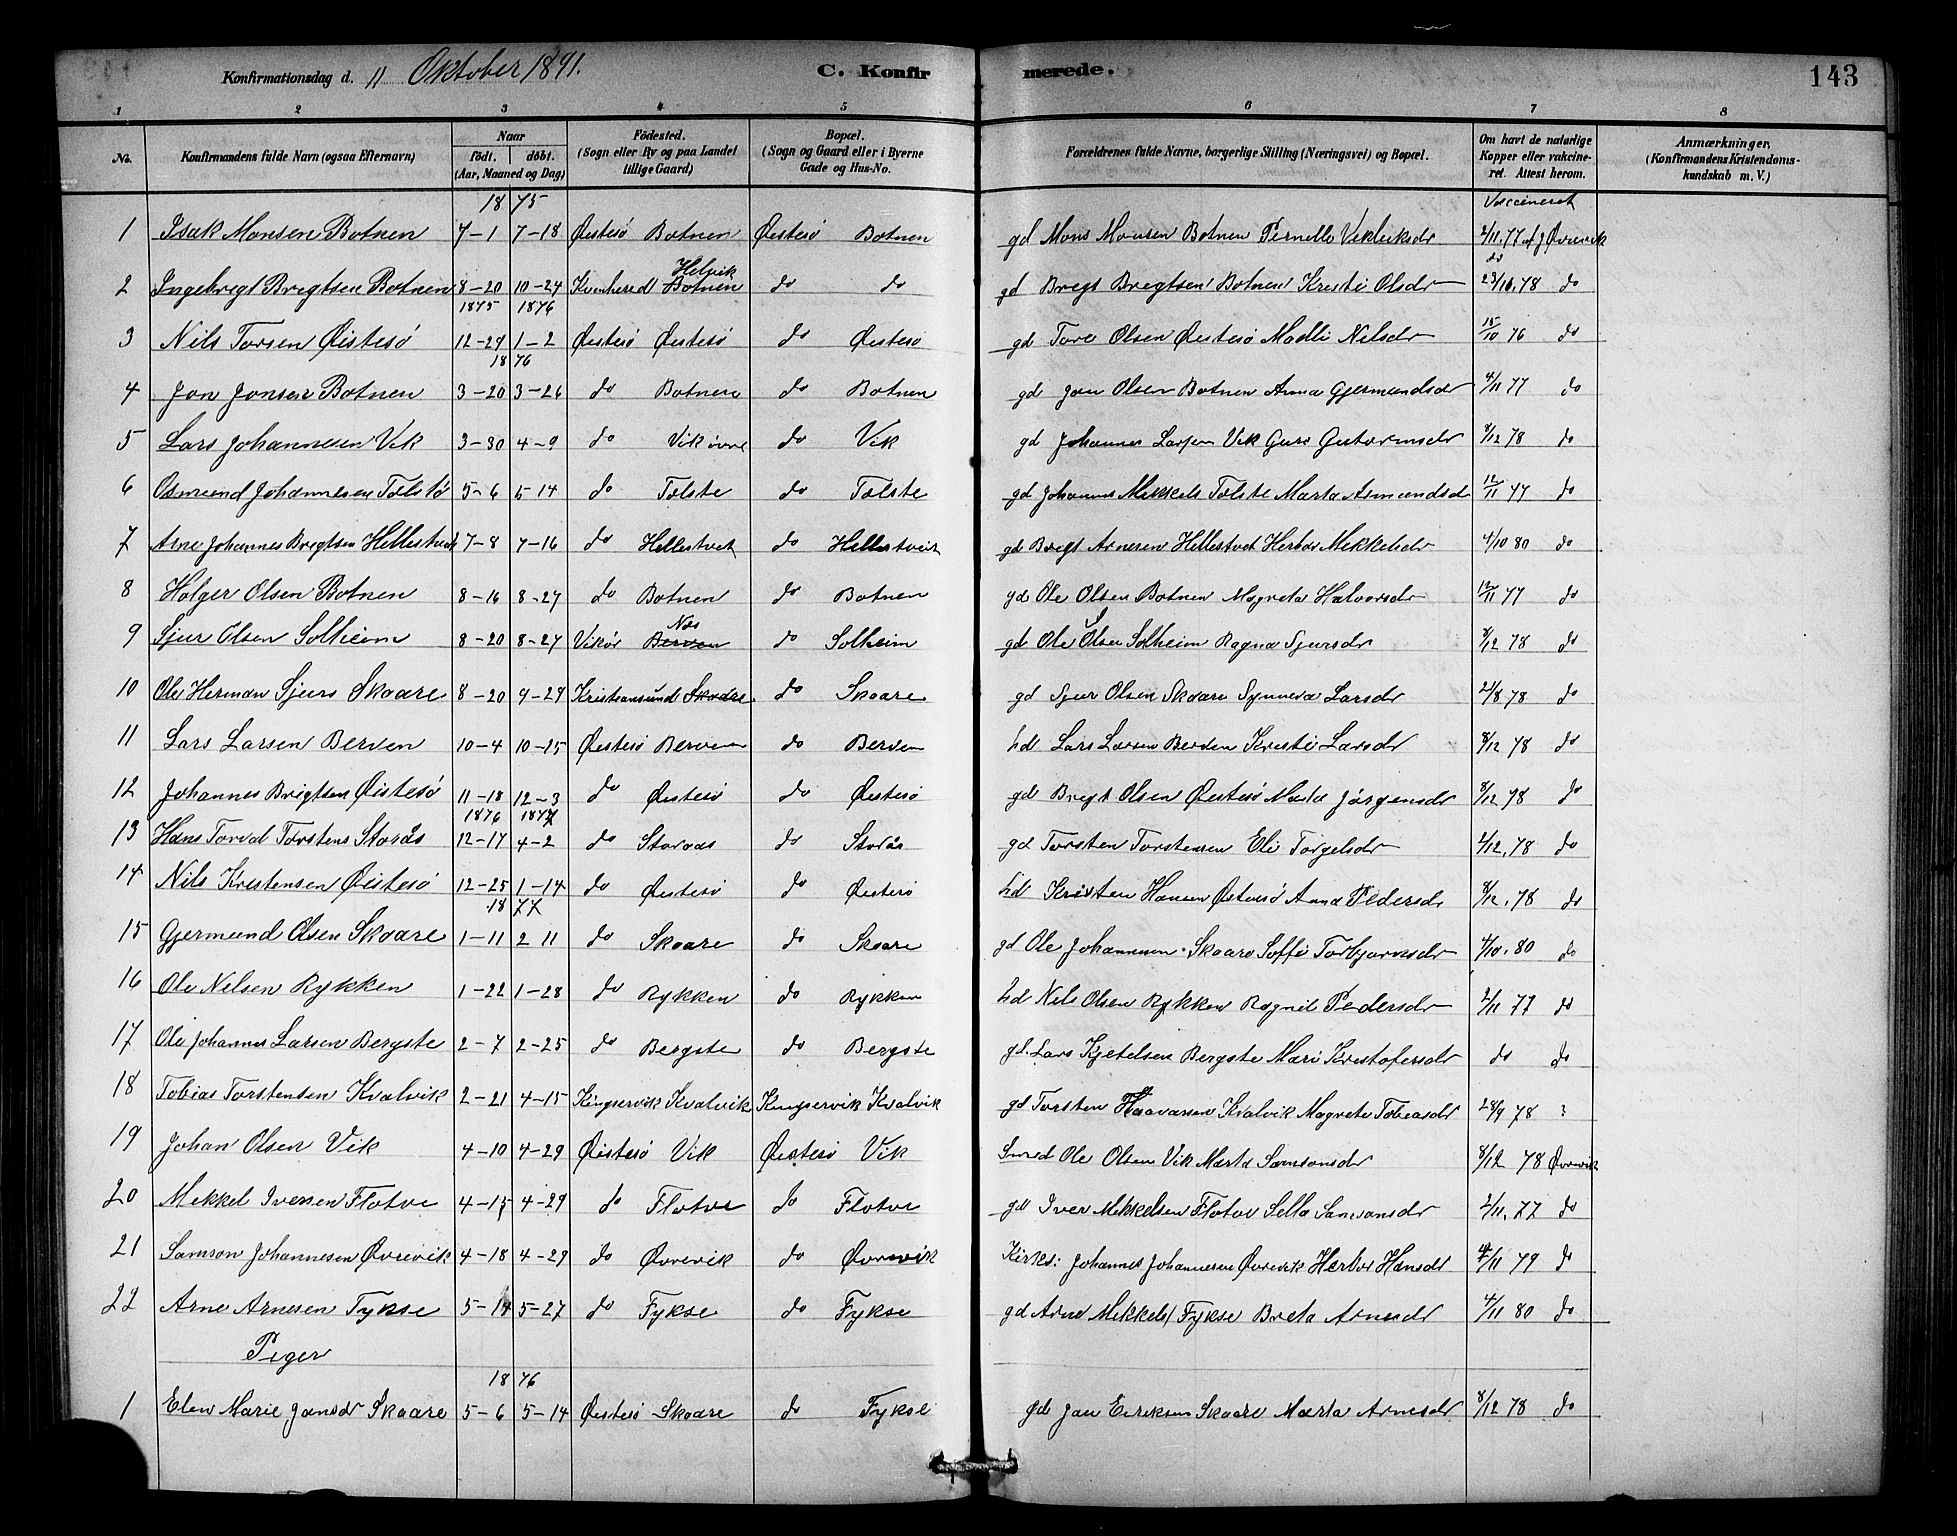 Konfirmationsdag d. 11 Oktober 1891. C. Konfirmerede. 143
1 2 3 4 5 6 7 8
No. Konfirmandens fulde Navn (ogsaa Efternavn) Naar födt. döbt. (Aar, Maaned og Dag) Födested. (Sogn eller By og paa Landet tillige Gaard) Bopæl. (Sogn og Gaard eller i Byerne Gade og Hus-No. Forældrenes fulde Navne, borgerlige Stilling (Næringsvei) og Bopæl. Om havt de naturlige Kopper eller vakcineret. Attest herom. Anmærkninger, (Konfirmandens Kristendomskundskab m. V.)
1875 Vaccineret
1 Isak Monsen Botnen 7-1 7-18 Øistesö Botnen Øistesö Botnen gd Mons Monsen Botnen Pernelle Vikleiksdr 2/11.77 af J Øvrevik
2 Ingebregt Bregtsen Botnen 8-20 10-24 Kvinherred Helvik Botnen do do gd Bregt Bregtsen Botnen Kristi Olsdr do 23/10.78 do
1875 1876
3 Nils Torsen Øistesö 12-29 1-2 Øistesö Øistesö do Øistesö gd Tore Olsen Øistesö Madli Nilsdr 15/10 76 do
1876
4 Jon Jonsen Botnen 3-20 3-26 do Botnen do Botnen gd Jon Olsen Botnen Anna Gjermundsdr 4/11 77 do
5 Lars Johannesen Vik 3-30 4-9 do Vik øvre do Vik gd Johannes Larsen Vik Guro Gutormsdr 8/12 78 do
6 Osmund Johannesen Tolstö 5-6 5-14 do Tolste do Tolste gd Johannes Mikkels Tolste Marta Asmundsd 12/11 77 do
7 Arne Johannes Bregtsen Hellestveit 7-8 7-16 do Hellestvet do Hellestveit gd Bregt Arnesen Hellestvet Herbor Mekkelsdr 4/10 80 do
8 Holger Olsen Botnen 8-16 8-27 do Botnen do Botnen gd Ole Olsen Botnen Magreta Halvorsdr 12/11 77 do
9 Sjur Olsen Solheim 8-20 8-27 Vikör Næs Berven do Solheim gd Ole Olsen Solheim Ragna Sjursdr 8/12 78 do
10 Ole Herman Sjurs Skaare 8-20 9-24 Kristiansund Skaare do Skaare gd Sjur Olsen Skaare Synneva Larsdr 21/8 78 do
11 Lars Larsen Berven 10-4 10-15 Øistesö Berven do Berven hd Lars Larsen Berven Kristi Larsdr 8/12 78 do
12 Johannes Brigtsen Øistesö 11-18 12-3 do Øistesö do Øistesö gd Bregt Olsen Øistesö Marta Jörgensdr 8/12 78 do
1876 1877
13 Hans Torvd Torstens Storås 12-17 4-2 do Storaas do Storås gd Torsten Torstensen Eli Torgelsdr 4/12.78 do
14 Nils Kristensen Øistesö 12-25 1-14 do Øistesö do Øistesö hd Kristen Hansen Østensö Anna Pedersdr 8/12.78 do
1877
15 Gjermund Olsen Skaare 1-11 2 11 do Skaare do Skaare gd Ole Johannesen Skaare Soffi Torbjörnsdr 4/10.80 do
16 Ole Nilsen Rykken 1-22 1-28 do Rykken do Rykken hd Nils Olsen Rykken Ragnil Pedersdr 2/11 77 do
17 Ole Johannes Larsen Bergste 2-7 2-25 do Bergste do Bergste gd. Lars Kjetelsen Bergste Mari Kristofersdr do do
18 Tobias Torstensen Kvalvik 2-21 4-15 Kingservik Kvalvik Kingservik Kvalvik gd Torsten Haavarsen Kvalvik Magrete Tobiasdr 28/9 78 ?
19 Johan Olsen Vik 4-10 4-29 Øistesö Vik Øistesö Vik Smed Ole Olsen Vik Marta Samsonsdr 8/12 78 Øvrevik
20 Mekkel Iversen Flotve 4-15 4-29 do Flotve do Flotve gd Iver Mikkelsen Flotve Sella Samsonsdr 2/11.77 do
21 Samson Johannesen Øvrevik 4-18 4-29 do Øvrevik do Øvrevik Kirkes: Johannes Johannesen Øvrevik Herbor Hansdr 4/11 79 do
22 Arne Arnesen Fykse 5-14 5-27 do Fykse do Fykse gd Arne Mikkels Fykse Breta Arnesdr 4/11 80 do
Piger
1876
1 Elen Marie Jonsdr Skaare 5-6 5-14 Øistesö Skaare do Fykse gd Jon Eriksen Skaare Marta Arnesdr 8/12 78 do